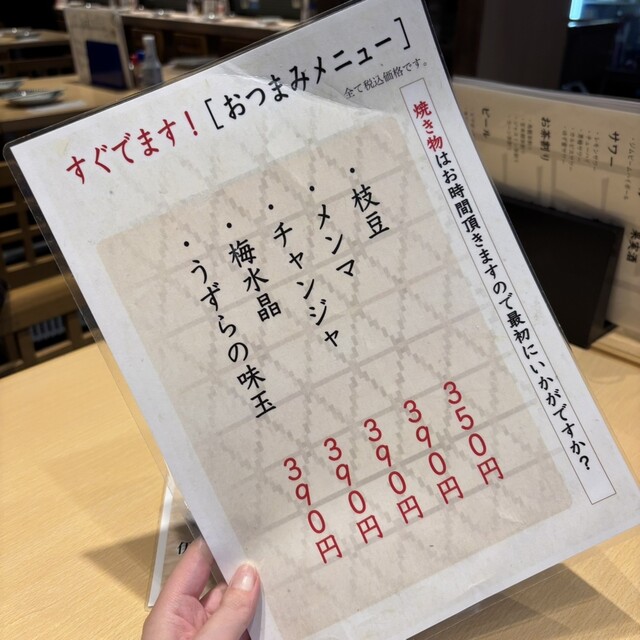 すぐでます！[おつまみメニュー]
全て税込価格です。
焼き物はお時間頂きますので最初にいかがですか？
・枝豆 350円
・メンマ 390円
・チャンジャ 390円
・梅水晶 390円
・うずらの味玉 390円
サワー
お茶割り
ビール